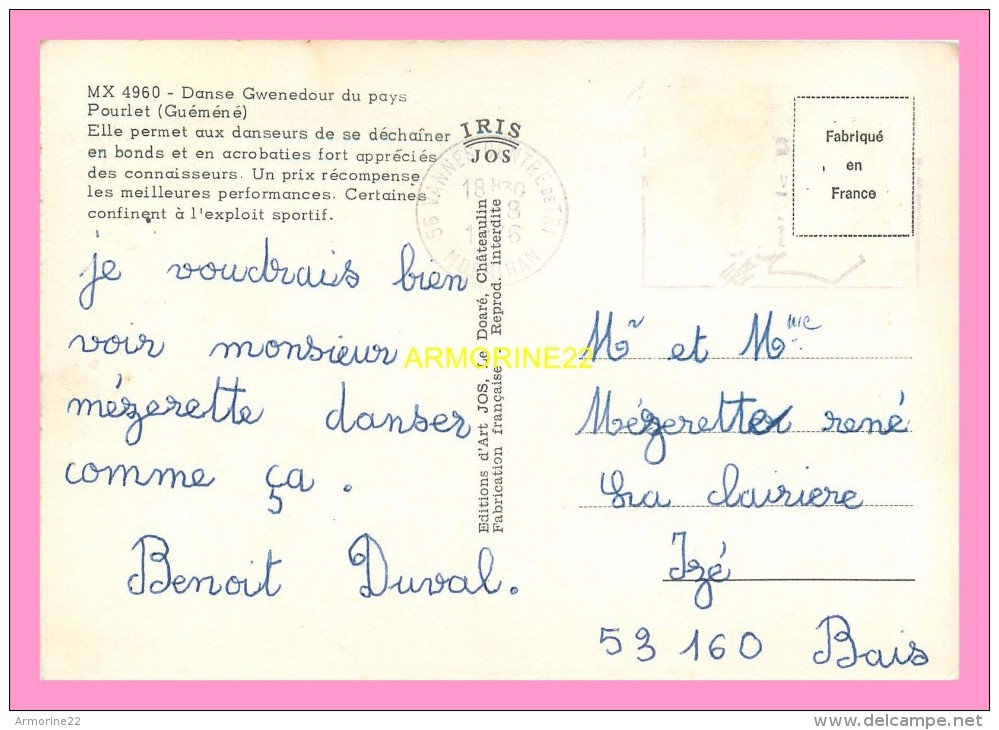 MX 4960 - Danse Gwenedour du pays
Pourlet (Guéméné)
Elle permet aux danseurs de se déchaîner
en bonds et en acrobaties fort appréciés
des connaisseurs. Un prix récompense
les meilleures performances. Certaines
confinent à l'exploit sportif.
je voudrais bien
voir monsieur
mézerette danser
comme ça.
Benoit Duval.
IRIS
JOS
56 VANNES CENTRE DE TRI
18 H30
8
MORBIHAN
Editions d'Art JOS, Le Doaré, Châteaulin
Fabrication française - Reprod. interdite
ARMORINE22
Fabriqué
en
France
Mr et Mme
Mézerette rené
La clairiere
Izé
53 160 Bais
Armorine22
www.delcampe.net